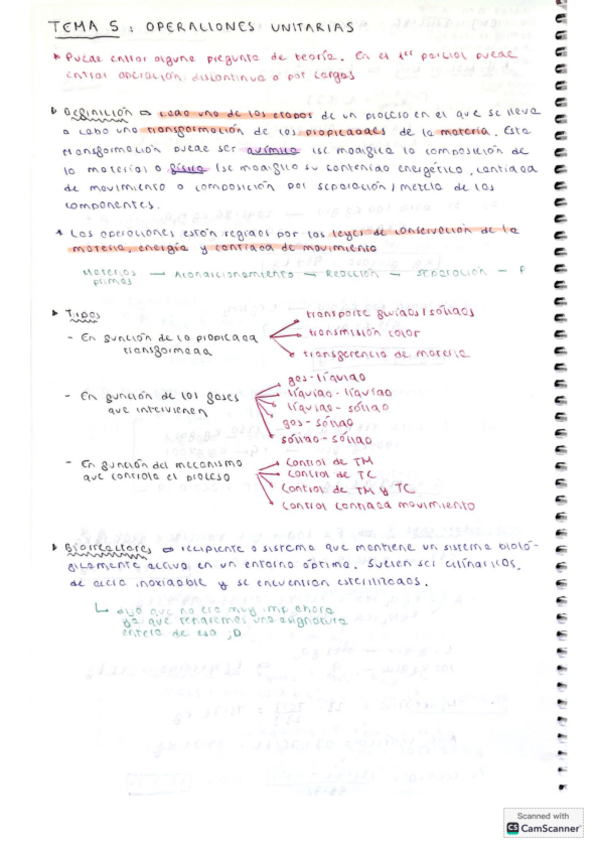 TEMA 5: OPERACIONES UNITARIAS
Puede entrar alguna pregunta de teoría. En el 1er parcial puede
entrar operación discontinua o por cargas
Definición ⇨ cada una de las etapas de un proceso en el que se lleva
a cabo una transformación de las propiedades de la materia. Esta
transformación puede ser química (se modifica la composición de
la materia) o física (se modifica su contenido energético, cantidad
de movimiento o composición por separación / mezcla de los
componentes.
Las operaciones están regidas por las leyes de conservación de la
materia, energía y cantidad de movimiento
Materias primas — Acondicionamiento — Reacción — Separación — P
Tipos
- En función de la propiedad transformada
transporte fluidos / sólidos
transmisión calor
transferencia de materia
- En función de las fases que intervienen
gas - líquido
líquido - líquido
líquido - sólido
gas - sólido
sólido - sólido
- En función del mecanismo que controla el proceso
Control de TM
Control de TC
Control de TM y TC
Control cantidad movimiento
Biorreactores ⇨ recipiente o sistema que mantiene un sistema bioló-
gicamente activo en un entorno óptimo. Suelen ser cilíndricos,
de acero inoxidable y se encuentran esterilizados.
dijo que no era muy imp ahora
ya que tendremos una asignatura
entera de eso ;D
Scanned with
CS CamScanner